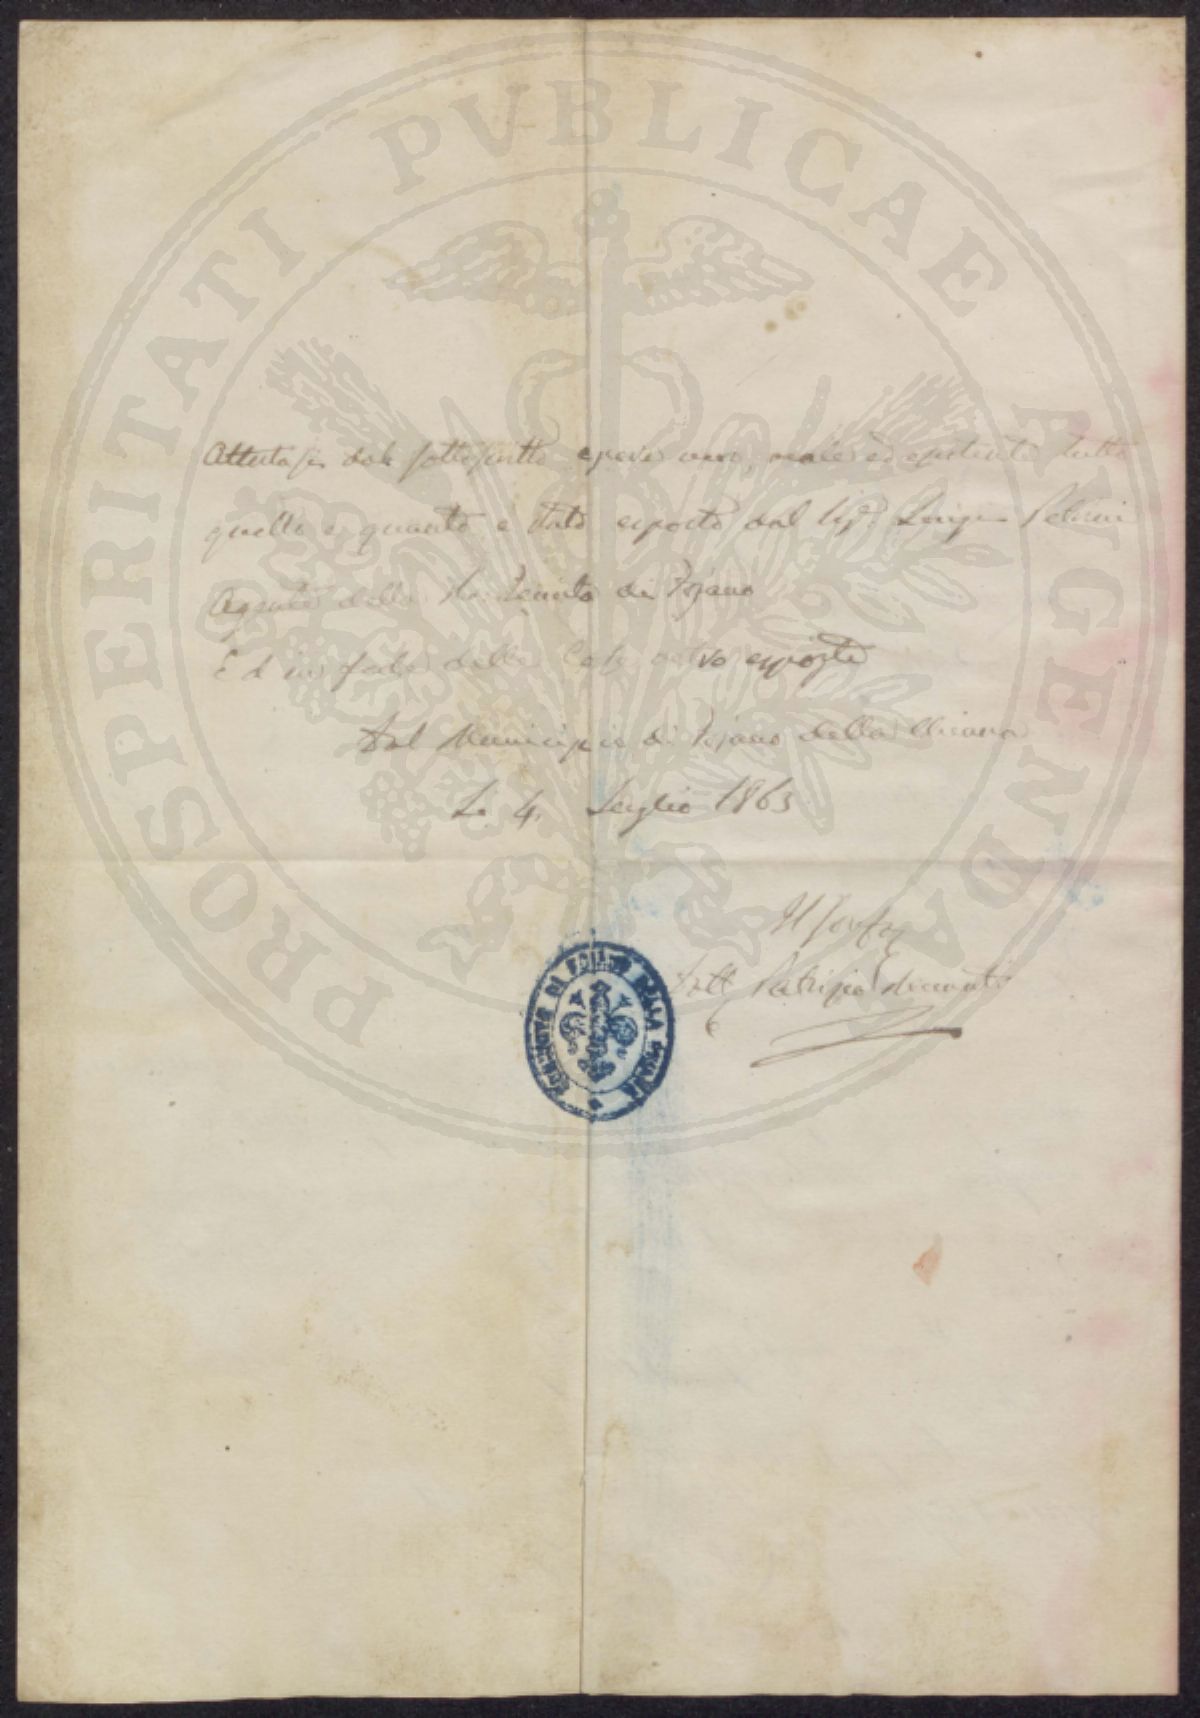 PROSPERITATI PUBLICAE AUGENDAE
Attestasi dal sottoscritto essere vero, reale ed esistente tutto
quello e quanto è stato esposto dal Sig.r Luigi
Agente della Tenuta di Fojano
Ed in fede delle cose esposte
Dal Municipio di Fojano della Chiana
Li 4. Luglio 1863
Il
Dott Patrizio
DI FOJANO DELLA CHIANA